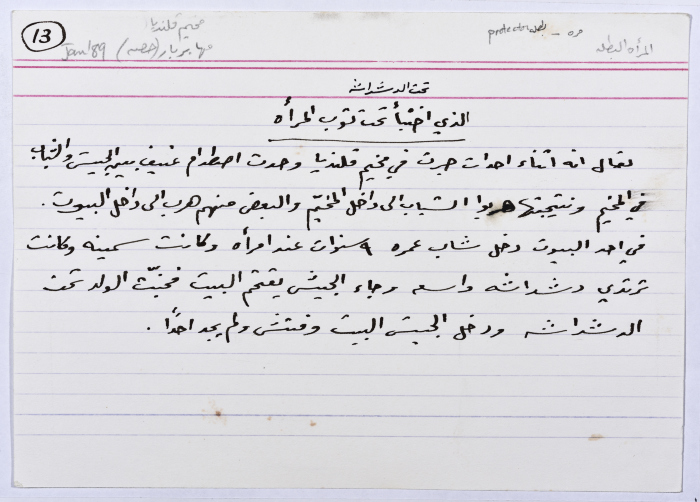 13
مخيم قلنديا
Jan '89
protection
المرأه البطله
تحت الدشداشه
الذي اختبأ تحت ثوب المرأه
يقال انه أثناء احداث جرت في مخيم قلنديا وحدث اصطدام عنيف بين الجيش والشباب
في المخيم ونتيجتها هربوا الشباب الى داخل المخيّم والبعض منهم هرب الى داخل البيوت .
في احد البيوت دخل شاب عمره ٩ سنوات عند امرأه وكانت سمينه وكانت
ترتدي دشداشه واسعه وجاء الجيش يقتحم البيت فخبّت الولد تحت
الدشداشه ودخل الجيش البيت وفتش ولم يجد احدًا .